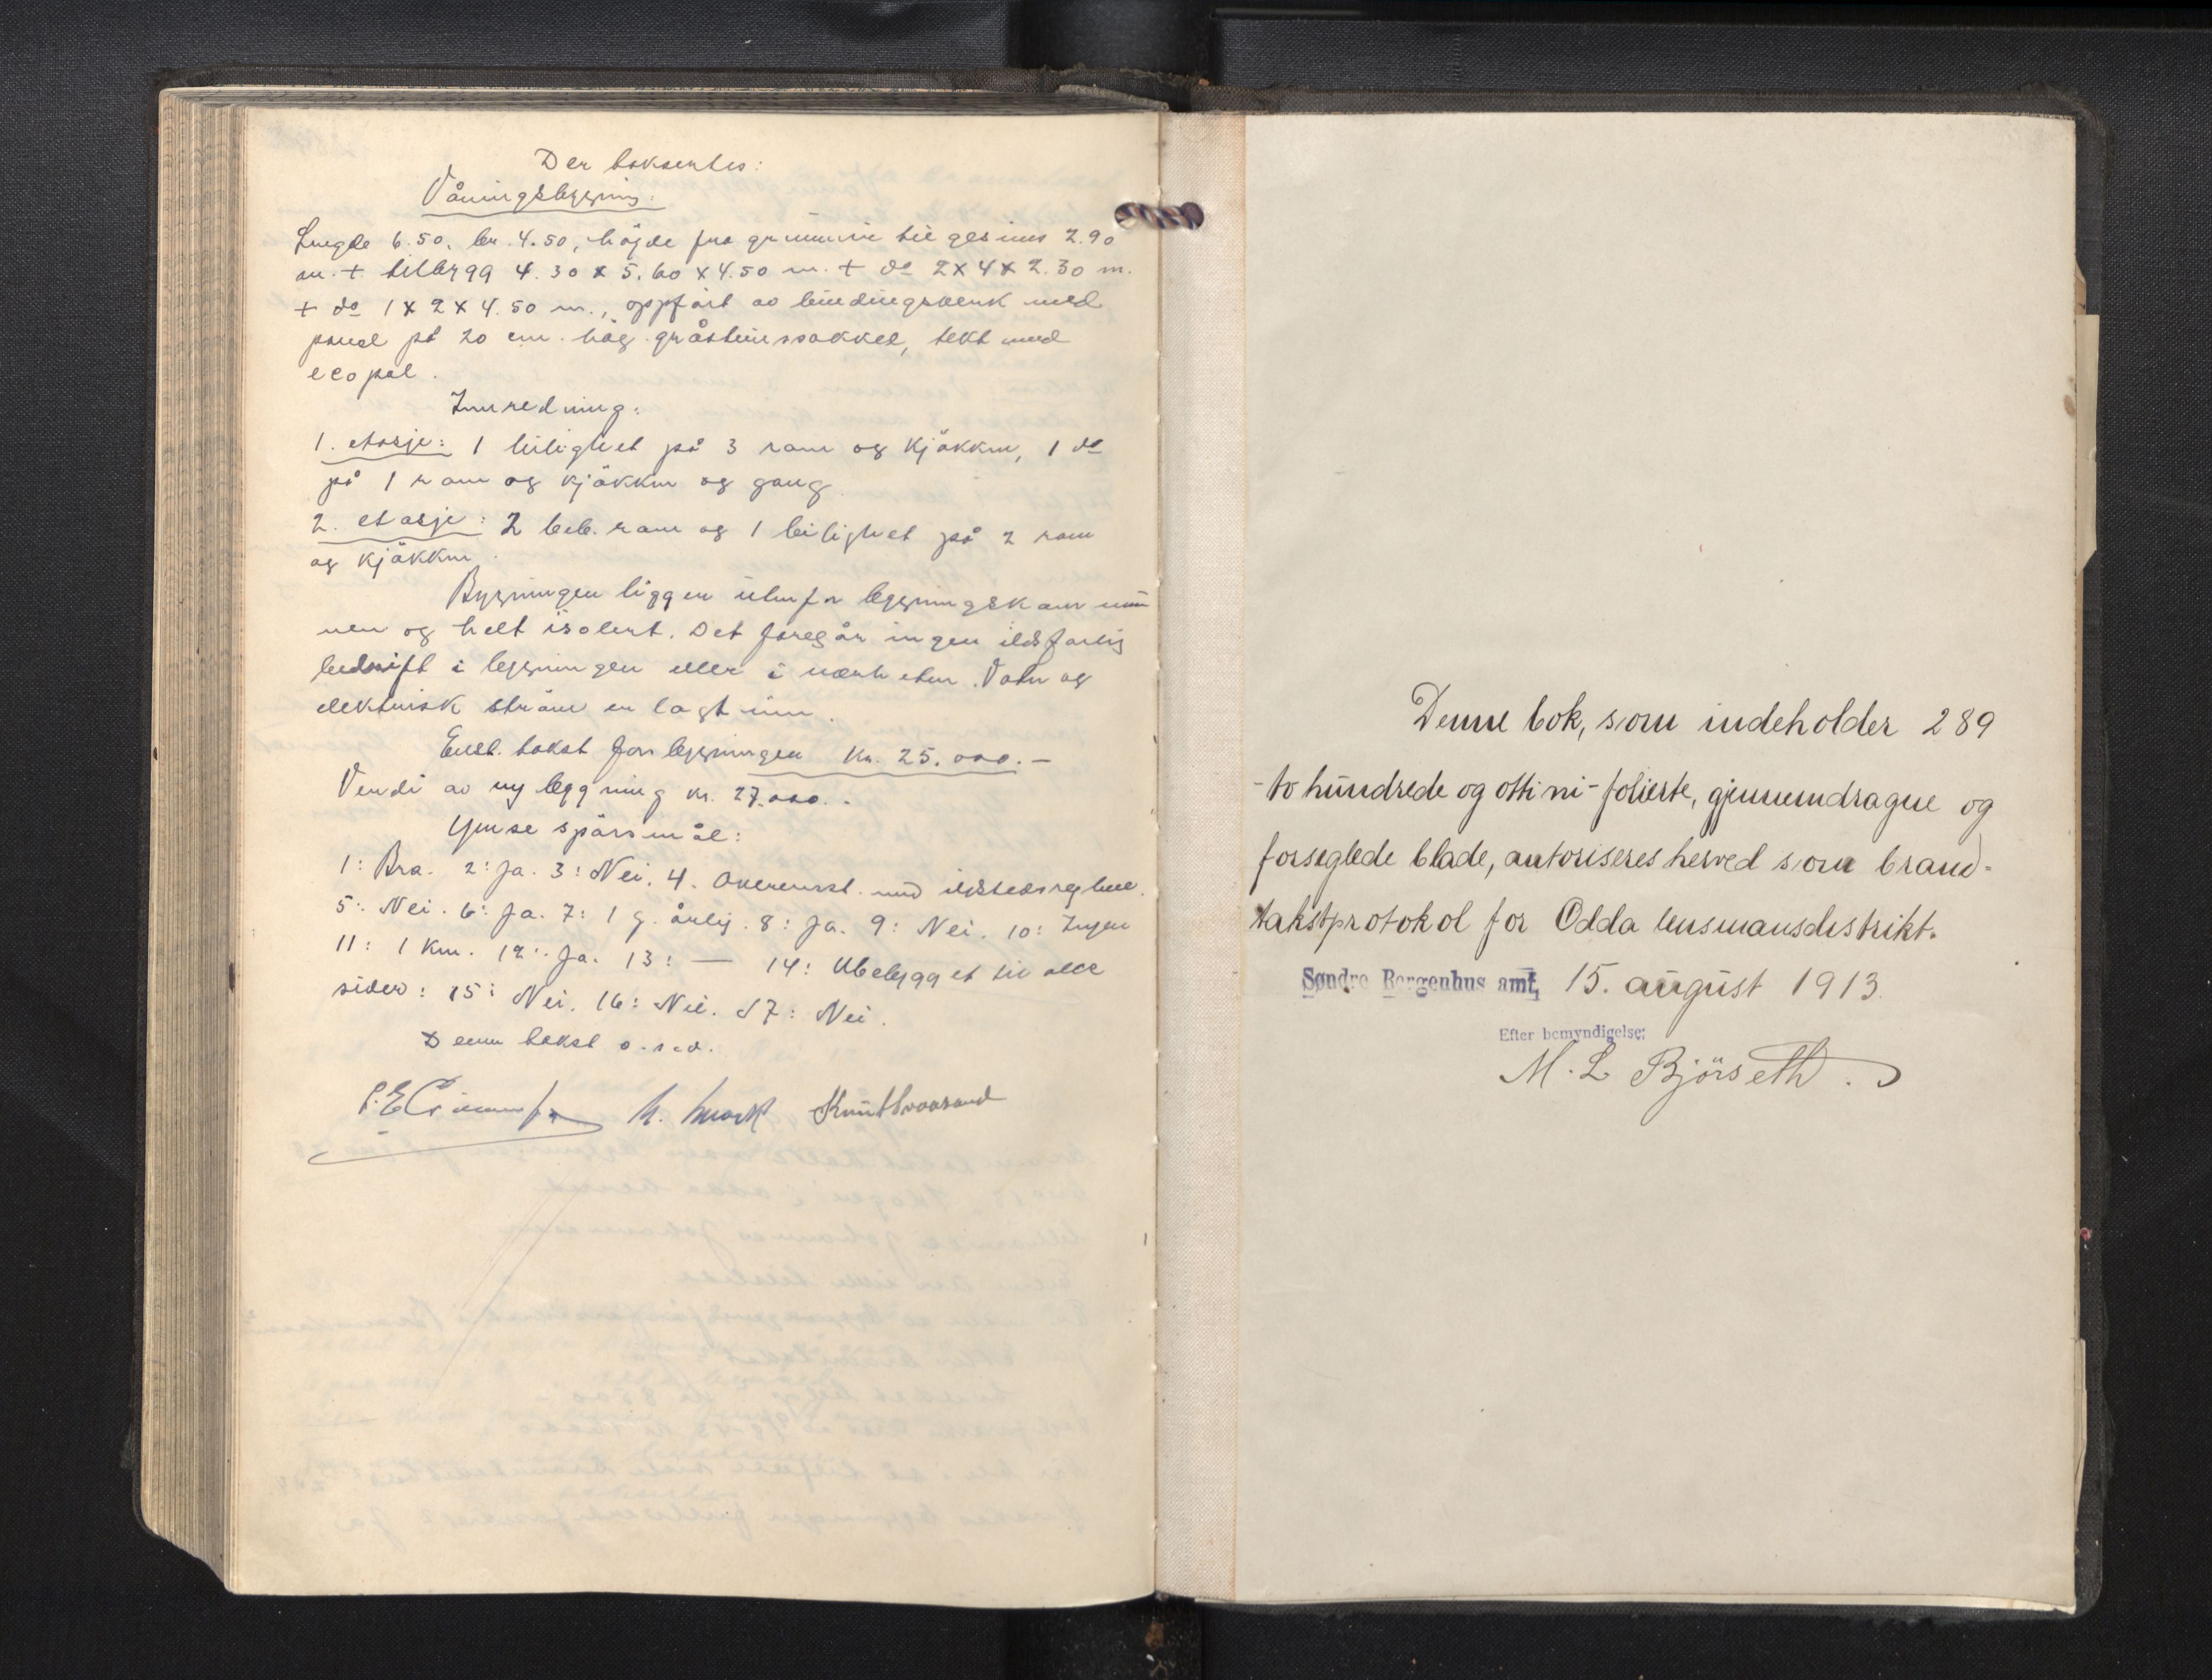 Der taksertes:
Våningsbygning:
Lengde 6.50, br. 4.50, högde fra grunnmur til gesims 2.90
m. + tilbygg 4.30 x 5.60 x 4.50 m. + do 2 x 4 x 2.30 m.
+ do 1 x 2 x 4.50 m., oppfört av bindingsverk med
panel på 20 cm. hög gråsteinssokkel, tekt med
icopal.
Innredning:
1. etasje: 1 leilighet på 3 rom og kjökken, 1 do
på 1 rom og kjökken og gang.
2. etasje: 2 beb. rom og 1 leilighet på 2 rom
og kjökken.
Bygningen ligger utenfor bygningskommu
nen og helt isolert. Det foregår ingen ildsfarlig
bedrift i bygningen eller i nærheten. Vatn og
elektrisk ström er lagt inn.
takst for bygningen kr. 25.000.-
Verdi av ny bygning kr. 27.000.-
Ymse spörsmål:
1: Bra. 2: Ja. 3: Nei. 4. Overensst. med ildstedsreglene.
5: Nei. 6: Ja. 7: 1 g. årlig. 8: Ja. 9: Nei. 10: Ingen
11: 1 km. 12: Ja. 13: — 14: Ubebygget til alle
sider: 15: Nei. 16: Nei. 17: Nei.
Denne takst o.s.v.
Knut Svaasand
Denne bok, som indeholder 289
-to hundrede og otti ni- folierte, gjennemdragne og
forseglede blade, autoriseres herved som brand-
takstprotokol for Odda lensmansdistrikt.
Søndre Bergenhus amt, 15. august 1913.
Efter bemyndigelse:
M. L. Björseth.